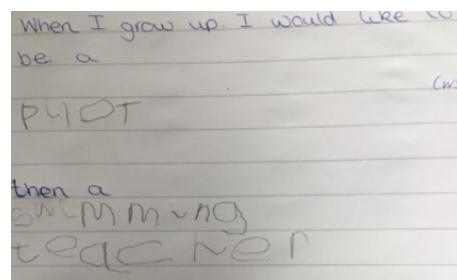 When I grow up. I would like to
be a
PIlOT
then a
swimming
teacher